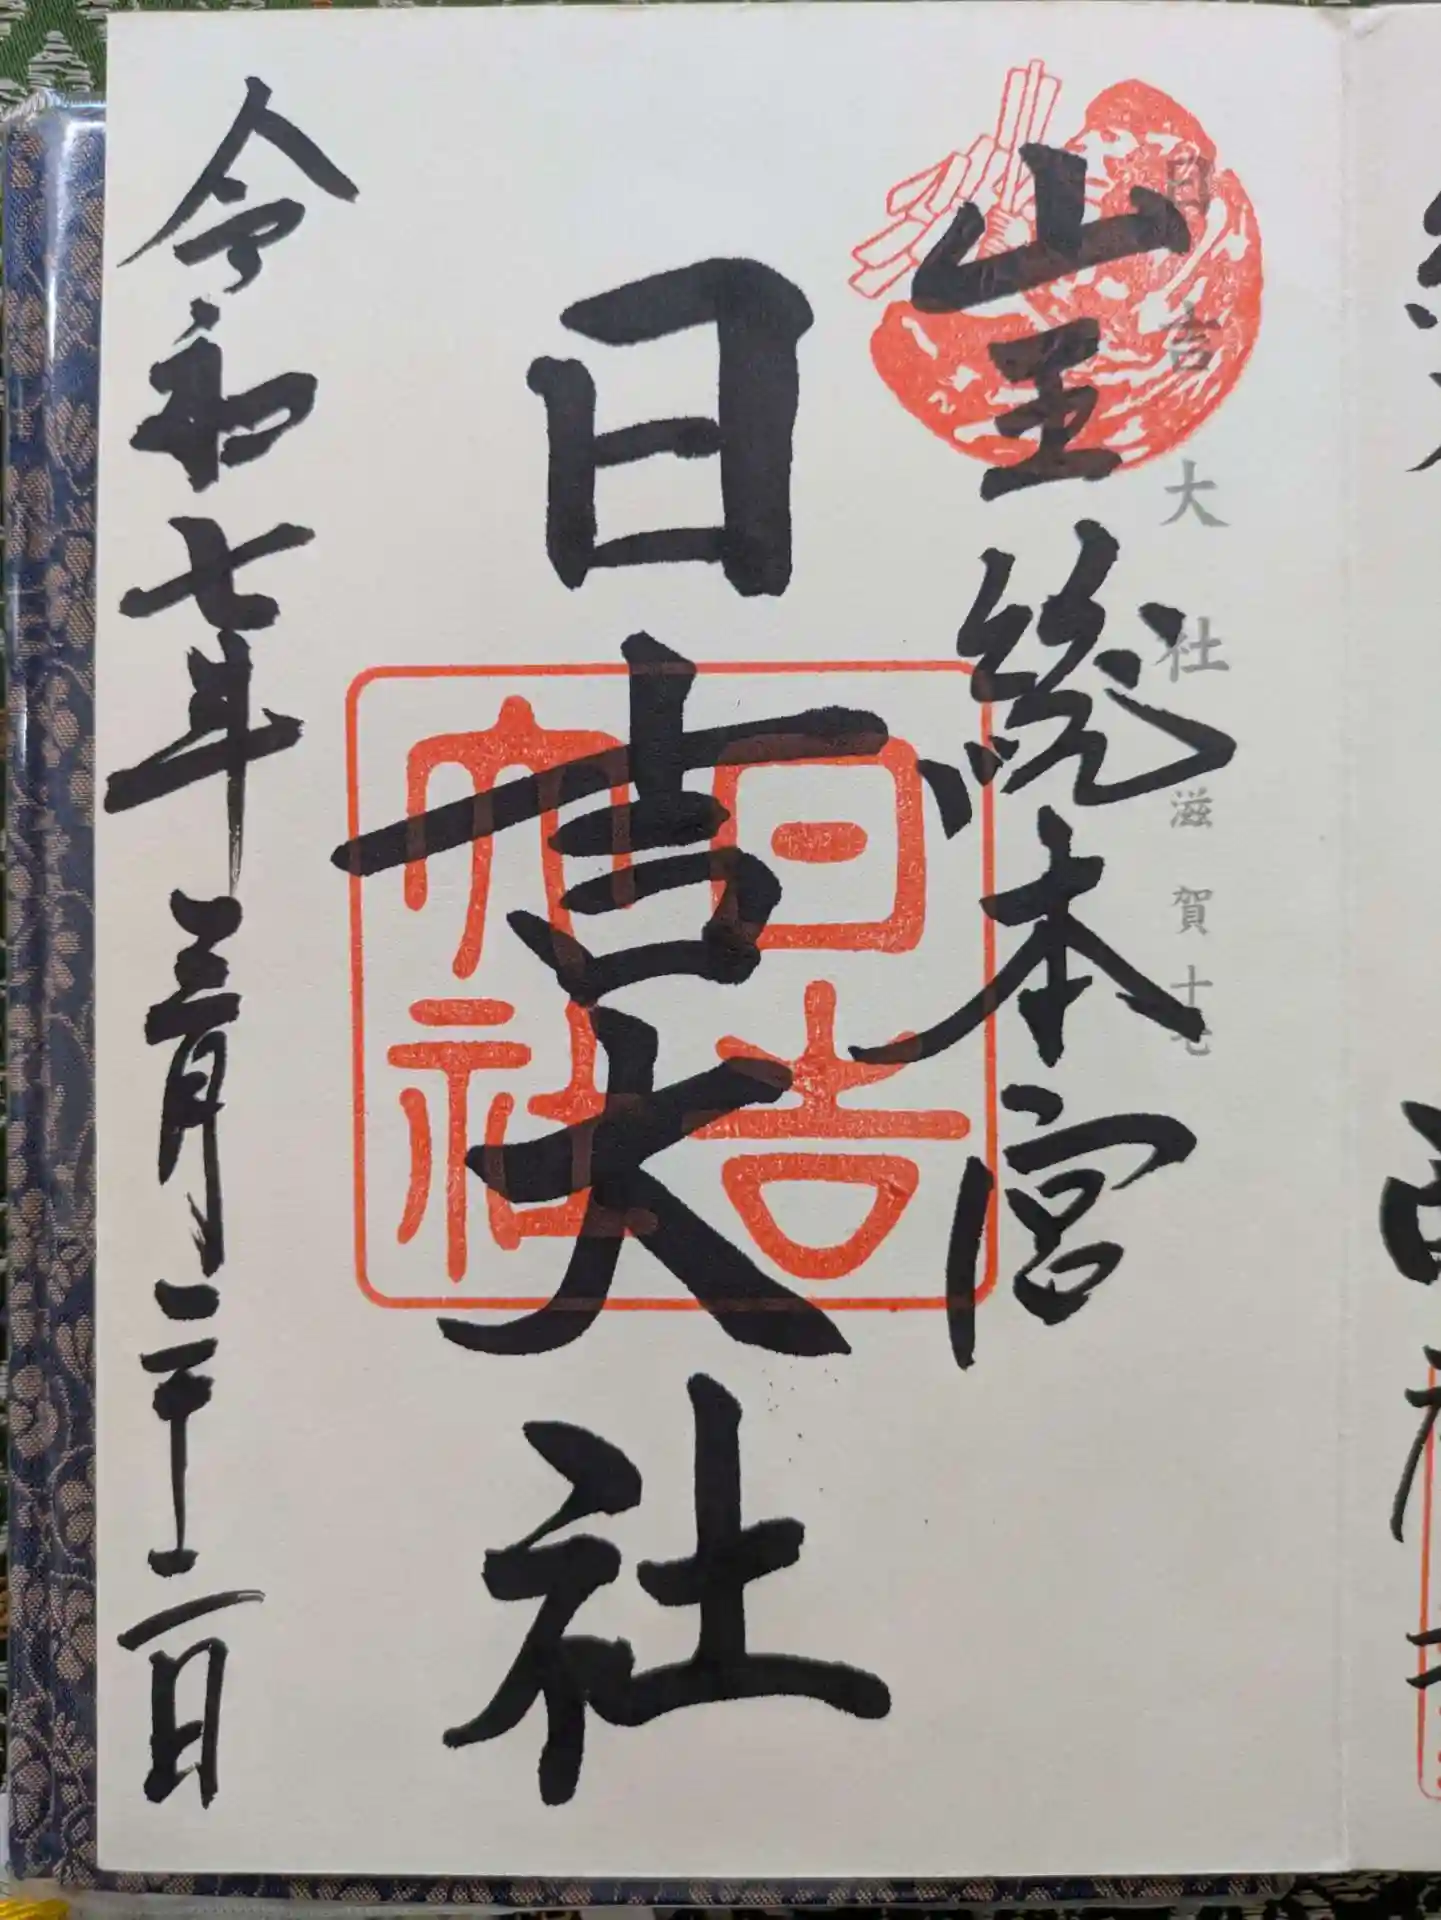 日吉大社 滋賀十
山王総本宮
日吉大社
日吉
大社
令和七年三月二十二日